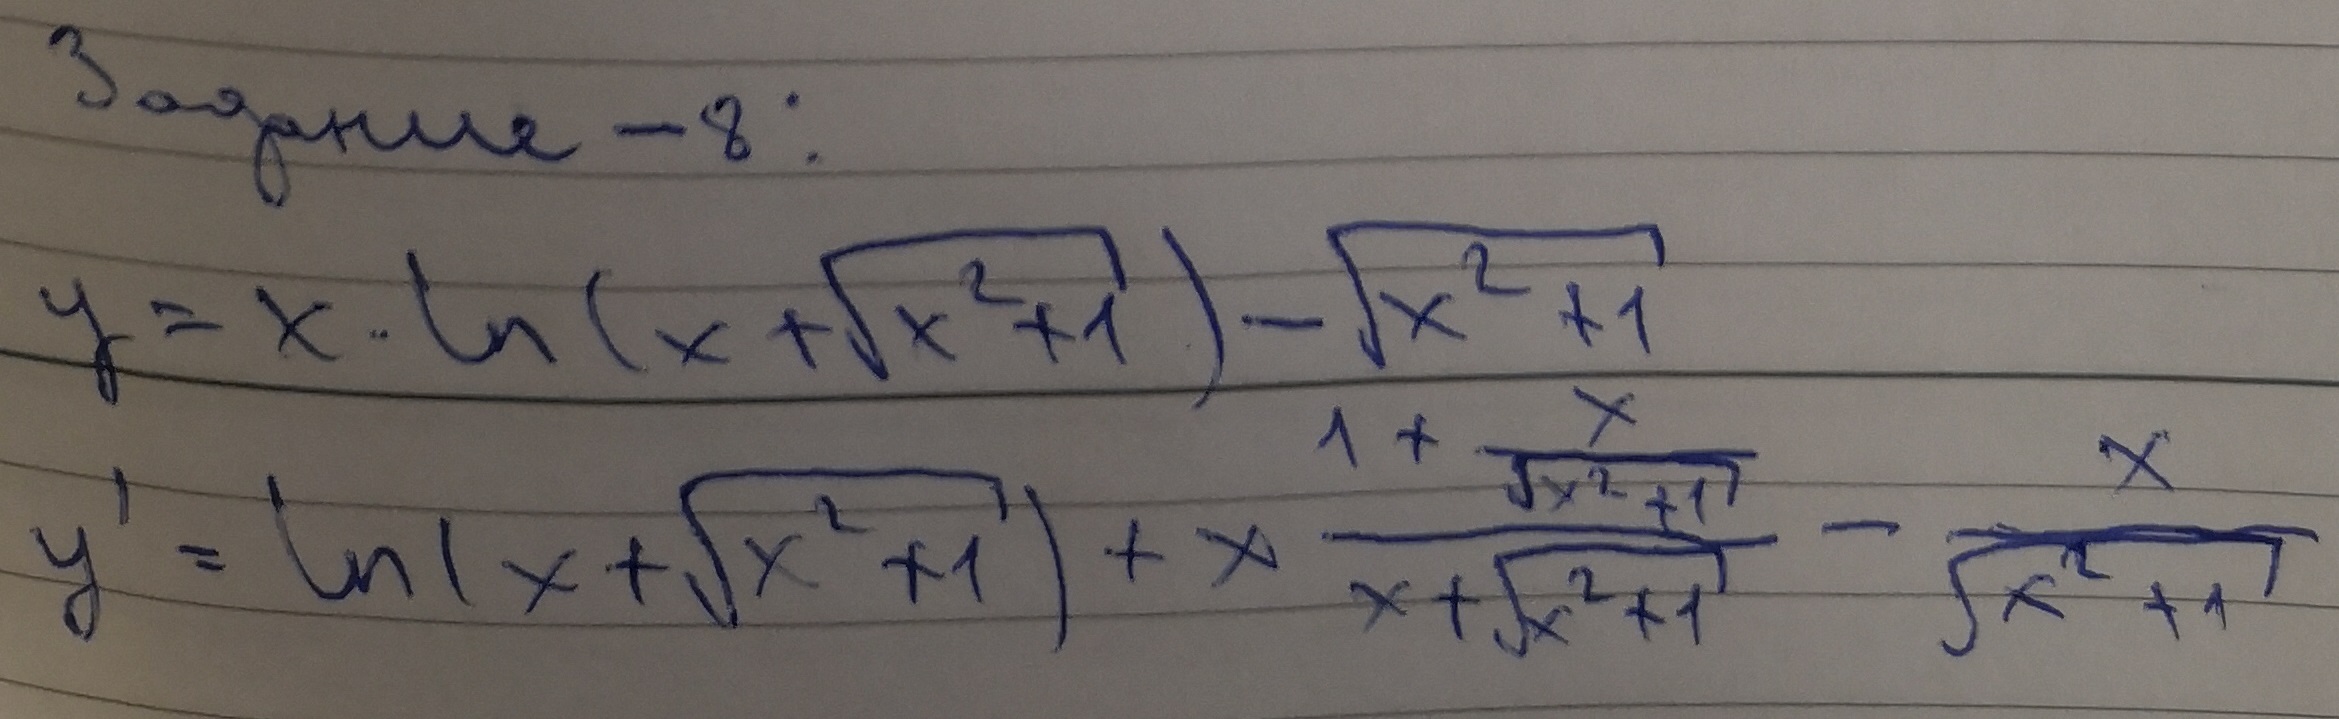 Задание - 8:
y = x · ln(x + √(x² + 1)) - √(x² + 1)
y' = ln(x + √(x² + 1)) + x (1 + x/√(x² + 1))/(x + √(x² + 1)) - x/√(x² + 1)